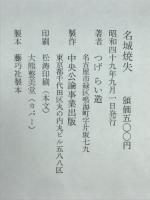 名城焼失　頒価五〇〇円
昭和四十九年九月一日発行
著者　つげ　らい造
名古屋市緑区鳴海町字片坂七九
製作　中央公論事業出版
東京都千代田区丸の内丸ビル五八八区
印刷　松濤印刷（本文）
大熊整美堂（カバー）
製本　藝巧社製本